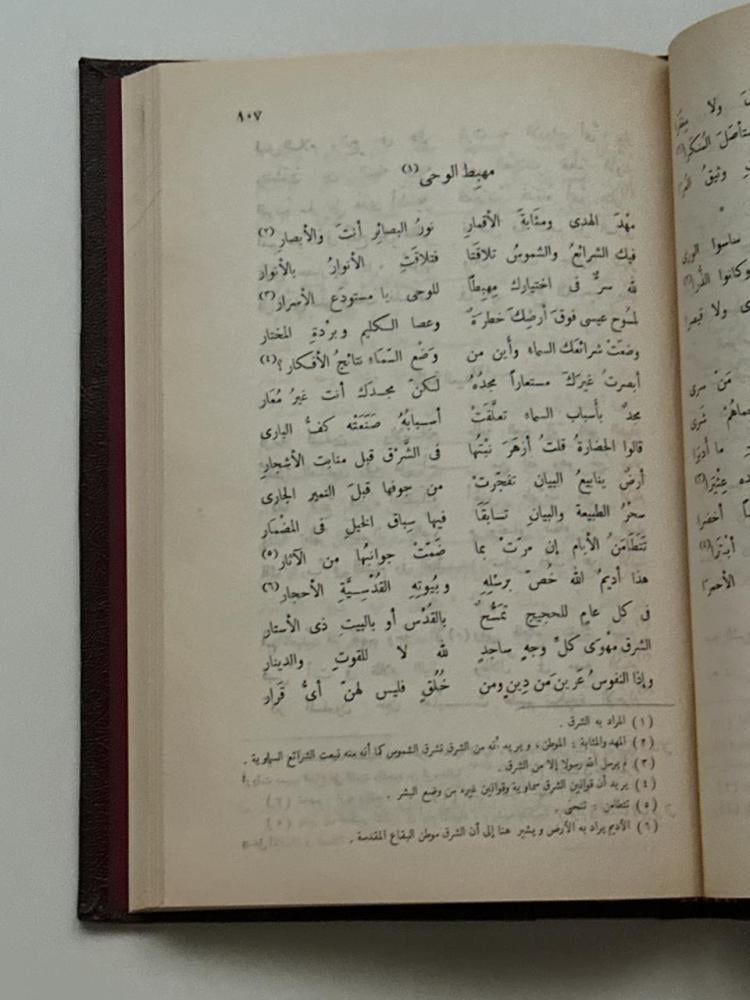 ١٠٧
مهبِط الوحى(١)
مهْدَ الهدى ومثابةَ الأقمارِ نورُ البصائِر أنتَ والأبصارِ(٢)
فيك الشرائعُ والشموسُ تلاقَتا فتلاقَتِ الأنوارُ بالأنوار
لله سرٌّ فى اختيارك مهبِطًا للوحى يا مستودَع الأسرار(٣)
لمسُوح عيسى فوقَ أرضِك خطرَةٌ وعصا الكليم وبرْدةِ المختار
وضعَتْ شرائعَك السماء وأين من وَضْع السَّماء نتائجُ الأفكار؟(٤)
أبصرتُ غيرَكَ مستعاراً مجدُهُ لكنّ مجدَك أنت غيرُ مُعَار
مجدٌ بأسباب السماء تعلَّقَتْ أسبابُهُ صَنَعَتْه كفُّ البارى
قالوا الحضارةُ قلتُ أزهَرَ نبْتُها فى الشَّرْق قبل منابت الأشجارِ
أرضٌ ينابيعُ البيان تفجّرتْ من جوفها قبلَ النمير الجارى
سحرُ الطبيعة والبيانِ تسابقَا فيها سِباق الخيلِ فى المضْمار
تتَطامَنُ الأيام إن مرّتْ بما ضَمّتْ جوانبُها من الآثار(٥)
هذا أديمُ الله خُصّ برسْلِهِ وبُيوتِهِ القُدْسِيَّةِ الأحجار(٦)
فى كل عامٍ للحجيج تمَسُّحٌ بالقُدْس أو بالبيتِ ذى الأستار
الشرق مهْوَى كلِّ وجهٍ ساجدٍ لله لا للقوتِ والدينار
وإذا النفوسُ عَرِينَ من دِينٍ ومن خُلُقٍ فليس لهنّ أىُّ قَرار
(١) المراد به الشرق .
(٢) المهد والمثابة : الموطن ، ويريد أنه من الشرق تشرق الشموس كما أنه منه نبعت الشرائع السماوية .
(٣) لم يرسل الله رسولا إلا من الشرق .
(٤) يريد أن قوانين الشرق سماوية وقوانين غيره من وضع البشر .
(٥) تتطامن : تنحنى .
(٦) الأديم يراد به الأرض ويشير هنا إلى أن الشرق موطن البقاع المقدسة .